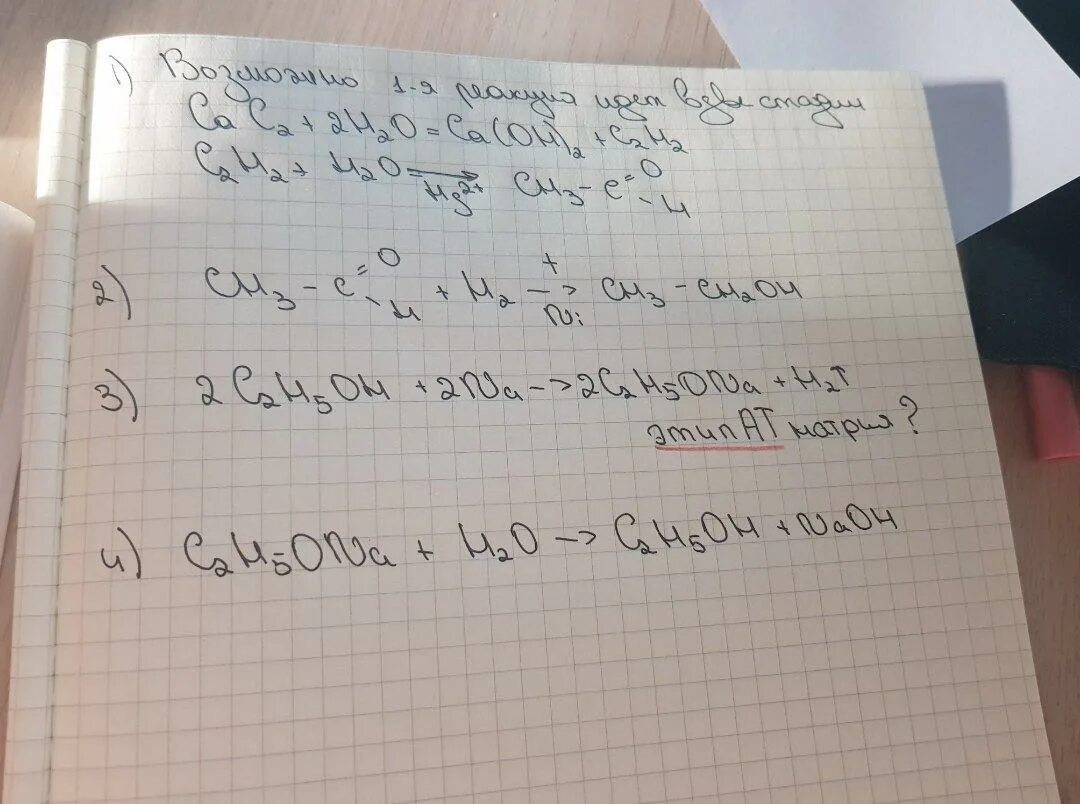 1) Возможно 1-я реакция идет в две стадии
CaC₂ + 2H₂O = Ca(OH)₂ + C₂H₂
C₂H₂ + H₂O → Hg²⁺ CH₃-C=O-H
2) CH₃-C=O-H + H₂ → t Ni CH₃-CH₂OH
3) 2C₂H₅OH + 2Na -> 2C₂H₅ONa + H₂↑
этилАТ натрия?
4) C₂H₅ONa + H₂O -> C₂H₅OH + NaOH